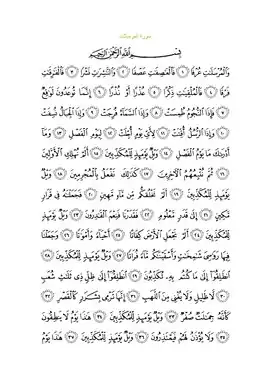 سورة المرسلات
بِسْمِ اللَّهِ الرَّحْمَٰنِ الرَّحِيمِ
وَالْمُرْسَلَٰتِ عُرْفًا ١ فَالْعَٰصِفَٰتِ عَصْفًا ٢ وَالنَّٰشِرَٰتِ نَشْرًا ٣ فَالْفَٰرِقَٰتِ
فَرْقًا ٤ فَالْمُلْقِيَٰتِ ذِكْرًا ٥ عُذْرًا أَوْ نُذْرًا ٦ إِنَّمَا تُوعَدُونَ لَوَٰقِعٌ
٧ فَإِذَا النُّجُومُ طُمِسَتْ ٨ وَإِذَا السَّمَآءُ فُرِجَتْ ٩ وَإِذَا الْجِبَالُ نُسِفَتْ
١٠ وَإِذَا الرُّسُلُ أُقِّتَتْ ١١ لِأَىِّ يَوْمٍ أُجِّلَتْ ١٢ لِيَوْمِ الْفَصْلِ ١٣ وَمَآ
أَدْرَىٰكَ مَا يَوْمُ الْفَصْلِ ١٤ وَيْلٌ يَوْمَئِذٍ لِّلْمُكَذِّبِينَ ١٥ أَلَمْ نُهْلِكِ الْأَوَّلِينَ
١٦ ثُمَّ نُتْبِعُهُمُ الْءَاخِرِينَ ١٧ كَذَٰلِكَ نَفْعَلُ بِالْمُجْرِمِينَ ١٨ وَيْلٌ
يَوْمَئِذٍ لِّلْمُكَذِّبِينَ ١٩ أَلَمْ نَخْلُقكُّم مِّن مَّآءٍ مَّهِينٍ ٢٠ فَجَعَلْنَٰهُ فِى قَرَارٍ
مَّكِينٍ ٢١ إِلَىٰ قَدَرٍ مَّعْلُومٍ ٢٢ فَقَدَرْنَا فَنِعْمَ الْقَٰدِرُونَ ٢٣ وَيْلٌ يَوْمَئِذٍ
لِّلْمُكَذِّبِينَ ٢٤ أَلَمْ نَجْعَلِ الْأَرْضَ كِفَاتًا ٢٥ أَحْيَآءً وَأَمْوَٰتًا ٢٦ وَجَعَلْنَا
فِيهَا رَوَٰسِىَ شَٰمِخَٰتٍ وَأَسْقَيْنَٰكُم مَّآءً فُرَاتًا ٢٧ وَيْلٌ يَوْمَئِذٍ لِّلْمُكَذِّبِينَ ٢٨
انطَلِقُوٓا۟ إِلَىٰ مَا كُنتُم بِهِۦ تُكَذِّبُونَ ٢٩ انطَلِقُوٓا۟ إِلَىٰ ظِلٍّ ذِى ثَلَٰثِ شُعَبٍ
٣٠ لَّا ظَلِيلٍ وَلَا يُغْنِى مِنَ اللَّهَبِ ٣١ إِنَّهَا تَرْمِى بِشَرَرٍ كَالْقَصْرِ ٣٢
كَأَنَّهُۥ جِمَٰلَتٌ صُفْرٌ ٣٣ وَيْلٌ يَوْمَئِذٍ لِّلْمُكَذِّبِينَ ٣٤ هَٰذَا يَوْمُ لَا يَنطِقُونَ
٣٥ وَلَا يُؤْذَنُ لَهُمْ فَيَعْتَذِرُونَ ٣٦ وَيْلٌ يَوْمَئِذٍ لِّلْمُكَذِّبِينَ ٣٧ هَٰذَا يَوْمُ